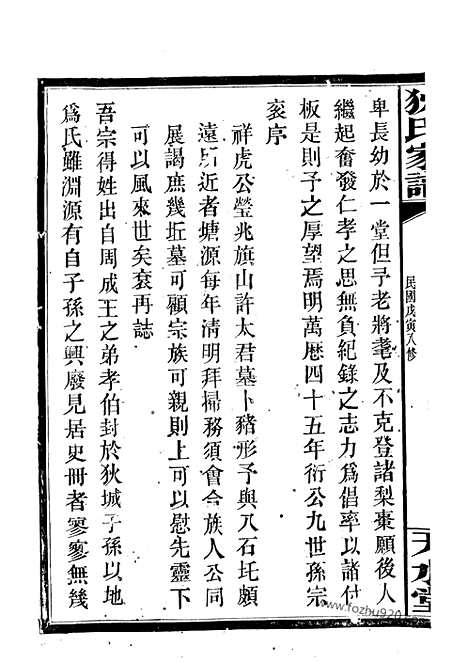 卑長幼於一堂但予老將耄及不克登諸梨棗願後人
繼起奮發仁孝之思無負紀錄之志力為倡率以諸付
板是則予之厚望焉明萬厯四十五年衍公九世孫宗
袞序
祥虎公瑩兆旗山許太君墓卜豬形予與入石圫頗
遠所近者塘源每年清明拜掃務須會合族人公同
展謁庶幾坵墓可顧宗族可親則上可以慰先靈下
可以風來世矣袞再誌
吾宗得姓出自周成王之弟孝伯封於狄城子孫以地
為氏雖淵源有自子孫之興廢見居史冊者寥寥無幾
狄氏家譜
民國戊寅八修
天水堂
www.fozhu920.com